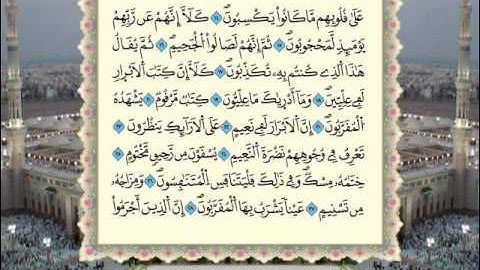 عَلَىٰ قُلُوبِهِم مَّا كَانُوا۟ يَكْسِبُونَ ١٤ كَلَّآ إِنَّهُمْ عَن رَّبِّهِمْ
يَوْمَئِذٍ لَّمَحْجُوبُونَ ١٥ ثُمَّ إِنَّهُمْ لَصَالُوا۟ ٱلْجَحِيمِ ١٦ ثُمَّ يُقَالُ
هَٰذَا ٱلَّذِى كُنتُم بِهِۦ تُكَذِّبُونَ ١٧ كَلَّآ إِنَّ كِتَٰبَ ٱلْأَبْرَارِ
لَفِى عِلِّيِّينَ ١٨ وَمَآ أَدْرَىٰكَ مَا عِلِّيُّونَ ١٩ كِتَٰبٌ مَّرْقُومٌ ٢٠ يَشْهَدُهُ
ٱلْمُقَرَّبُونَ ٢١ إِنَّ ٱلْأَبْرَارَ لَفِى نَعِيمٍ ٢٢ عَلَى ٱلْأَرَآئِكِ يَنظُرُونَ ٢٣
تَعْرِفُ فِى وُجُوهِهِمْ نَضْرَةَ ٱلنَّعِيمِ ٢٤ يُسْقَوْنَ مِن رَّحِيقٍ مَّخْتُومٍ ٢٥
خِتَٰمُهُۥ مِسْكٌ وَفِى ذَٰلِكَ فَلْيَتَنَافَسِ ٱلْمُتَنَٰفِسُونَ ٢٦ وَمِزَاجُهُۥ
مِن تَسْنِيمٍ ٢٧ عَيْنًا يَشْرَبُ بِهَا ٱلْمُقَرَّبُونَ ٢٨ إِنَّ ٱلَّذِينَ أَجْرَمُوا۟